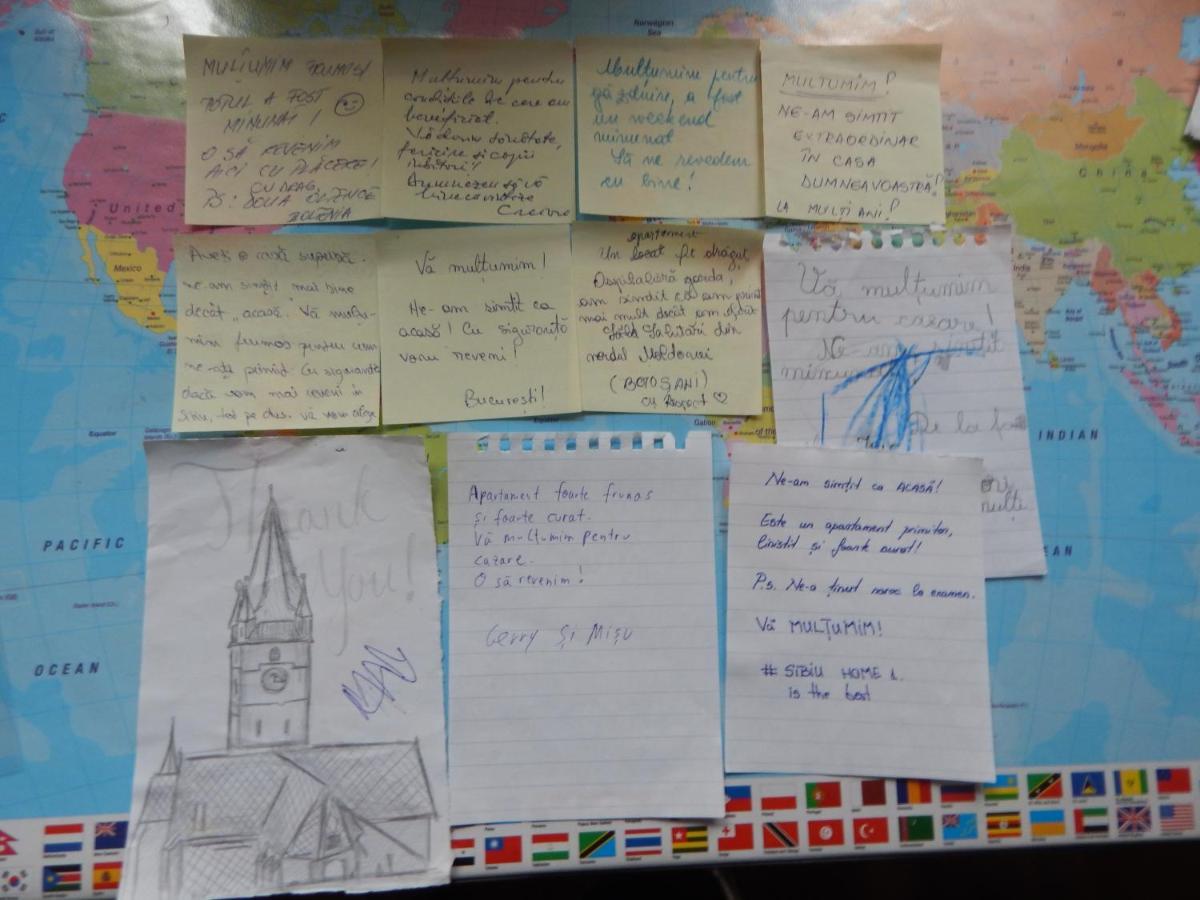 MULȚUMIM FRUMOS!
TOTUL A FOST
MINUNAT!
O SĂ REVENIM
AICI CU PLĂCERE!
CU DRAG,
Mulțumim pentru
condițiile de care am
beneficiat.
Vă dorim sănătate,
fericire și copii
iubitori!
Dumnezeu să vă
binecuvinteze
Mulțumim pentru
găzduire, a fost
un weekend
minunat
Să ne revedem
cu bine!
MULTUMIM!
NE-AM SIMTIT
EXTRAORDINAR
ÎN CASA
DUMNEAVOASTRĂ!
LA MULTI ANI!
Aveți o casă superbă.
Ne-am simțit mai bine
decât "acasă". Vă mulțu-
mim frumos pentru cum
ne-ați primit. Cu siguranță
dacă vom mai reveni în
Sibiu, tot pe dvs. vă vom alege
Vă mulțumim!
Ne-am simțit ca
acasă! Cu siguranță
vom reveni!
București!
apartament
Un locat pe drăguț
Ospitalieră gazda,
am simdit că am primit
mai mult decât am oferit
din
nordul Moldovei
(BOTOȘANI)
cu Respect ♡
Vă mulțumim
pentru cazare!
Ne-am simțit
minunat
De la
Thank
You!
Apartament foarte frumos
și foarte curat.
Vă mulțumim pentru
cazare.
O să revenim!
Gerry și Mișu
Ne-am simțit ca ACASĂ!
Este un apartament primitor,
liniștit și foarte curat!
P.s. Ne-a ținut noroc la examen.
Vă MULȚUMIM!
# SIBIU HOME 1.
is the best
Norwegian
Sea
United
Mexico
Mongolia
China
PACIFIC
OCEAN
INDIAN
Equator
Gabon